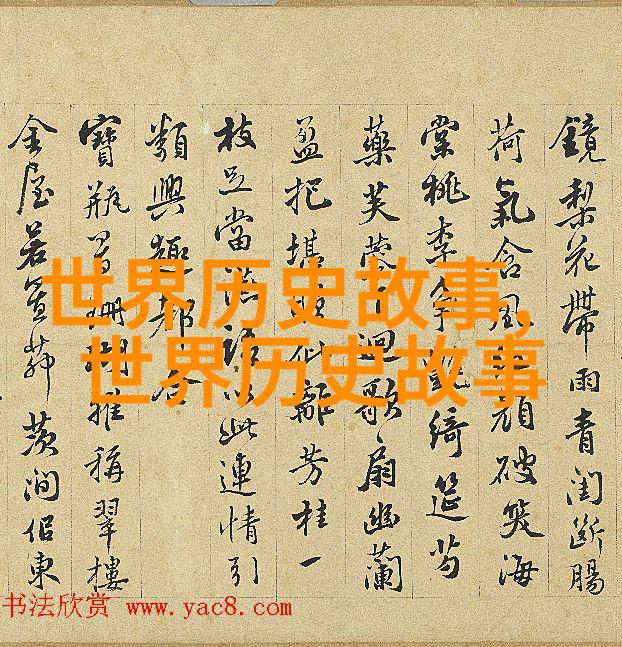 鏡梨花帶雨青閨斷腸
荷氣含風顏破笑海
棠桃李爭綺筵芍
藥芙蓉迴歌扇幽蘭
盈把堪似離芳桂一
枝足當此連情引
類興趣都
寶瓶珊瑚推稱翠樓
金屋若茨澗侶東
世界历史故事,
世界历史故事
书法欣赏 www.yac8.com